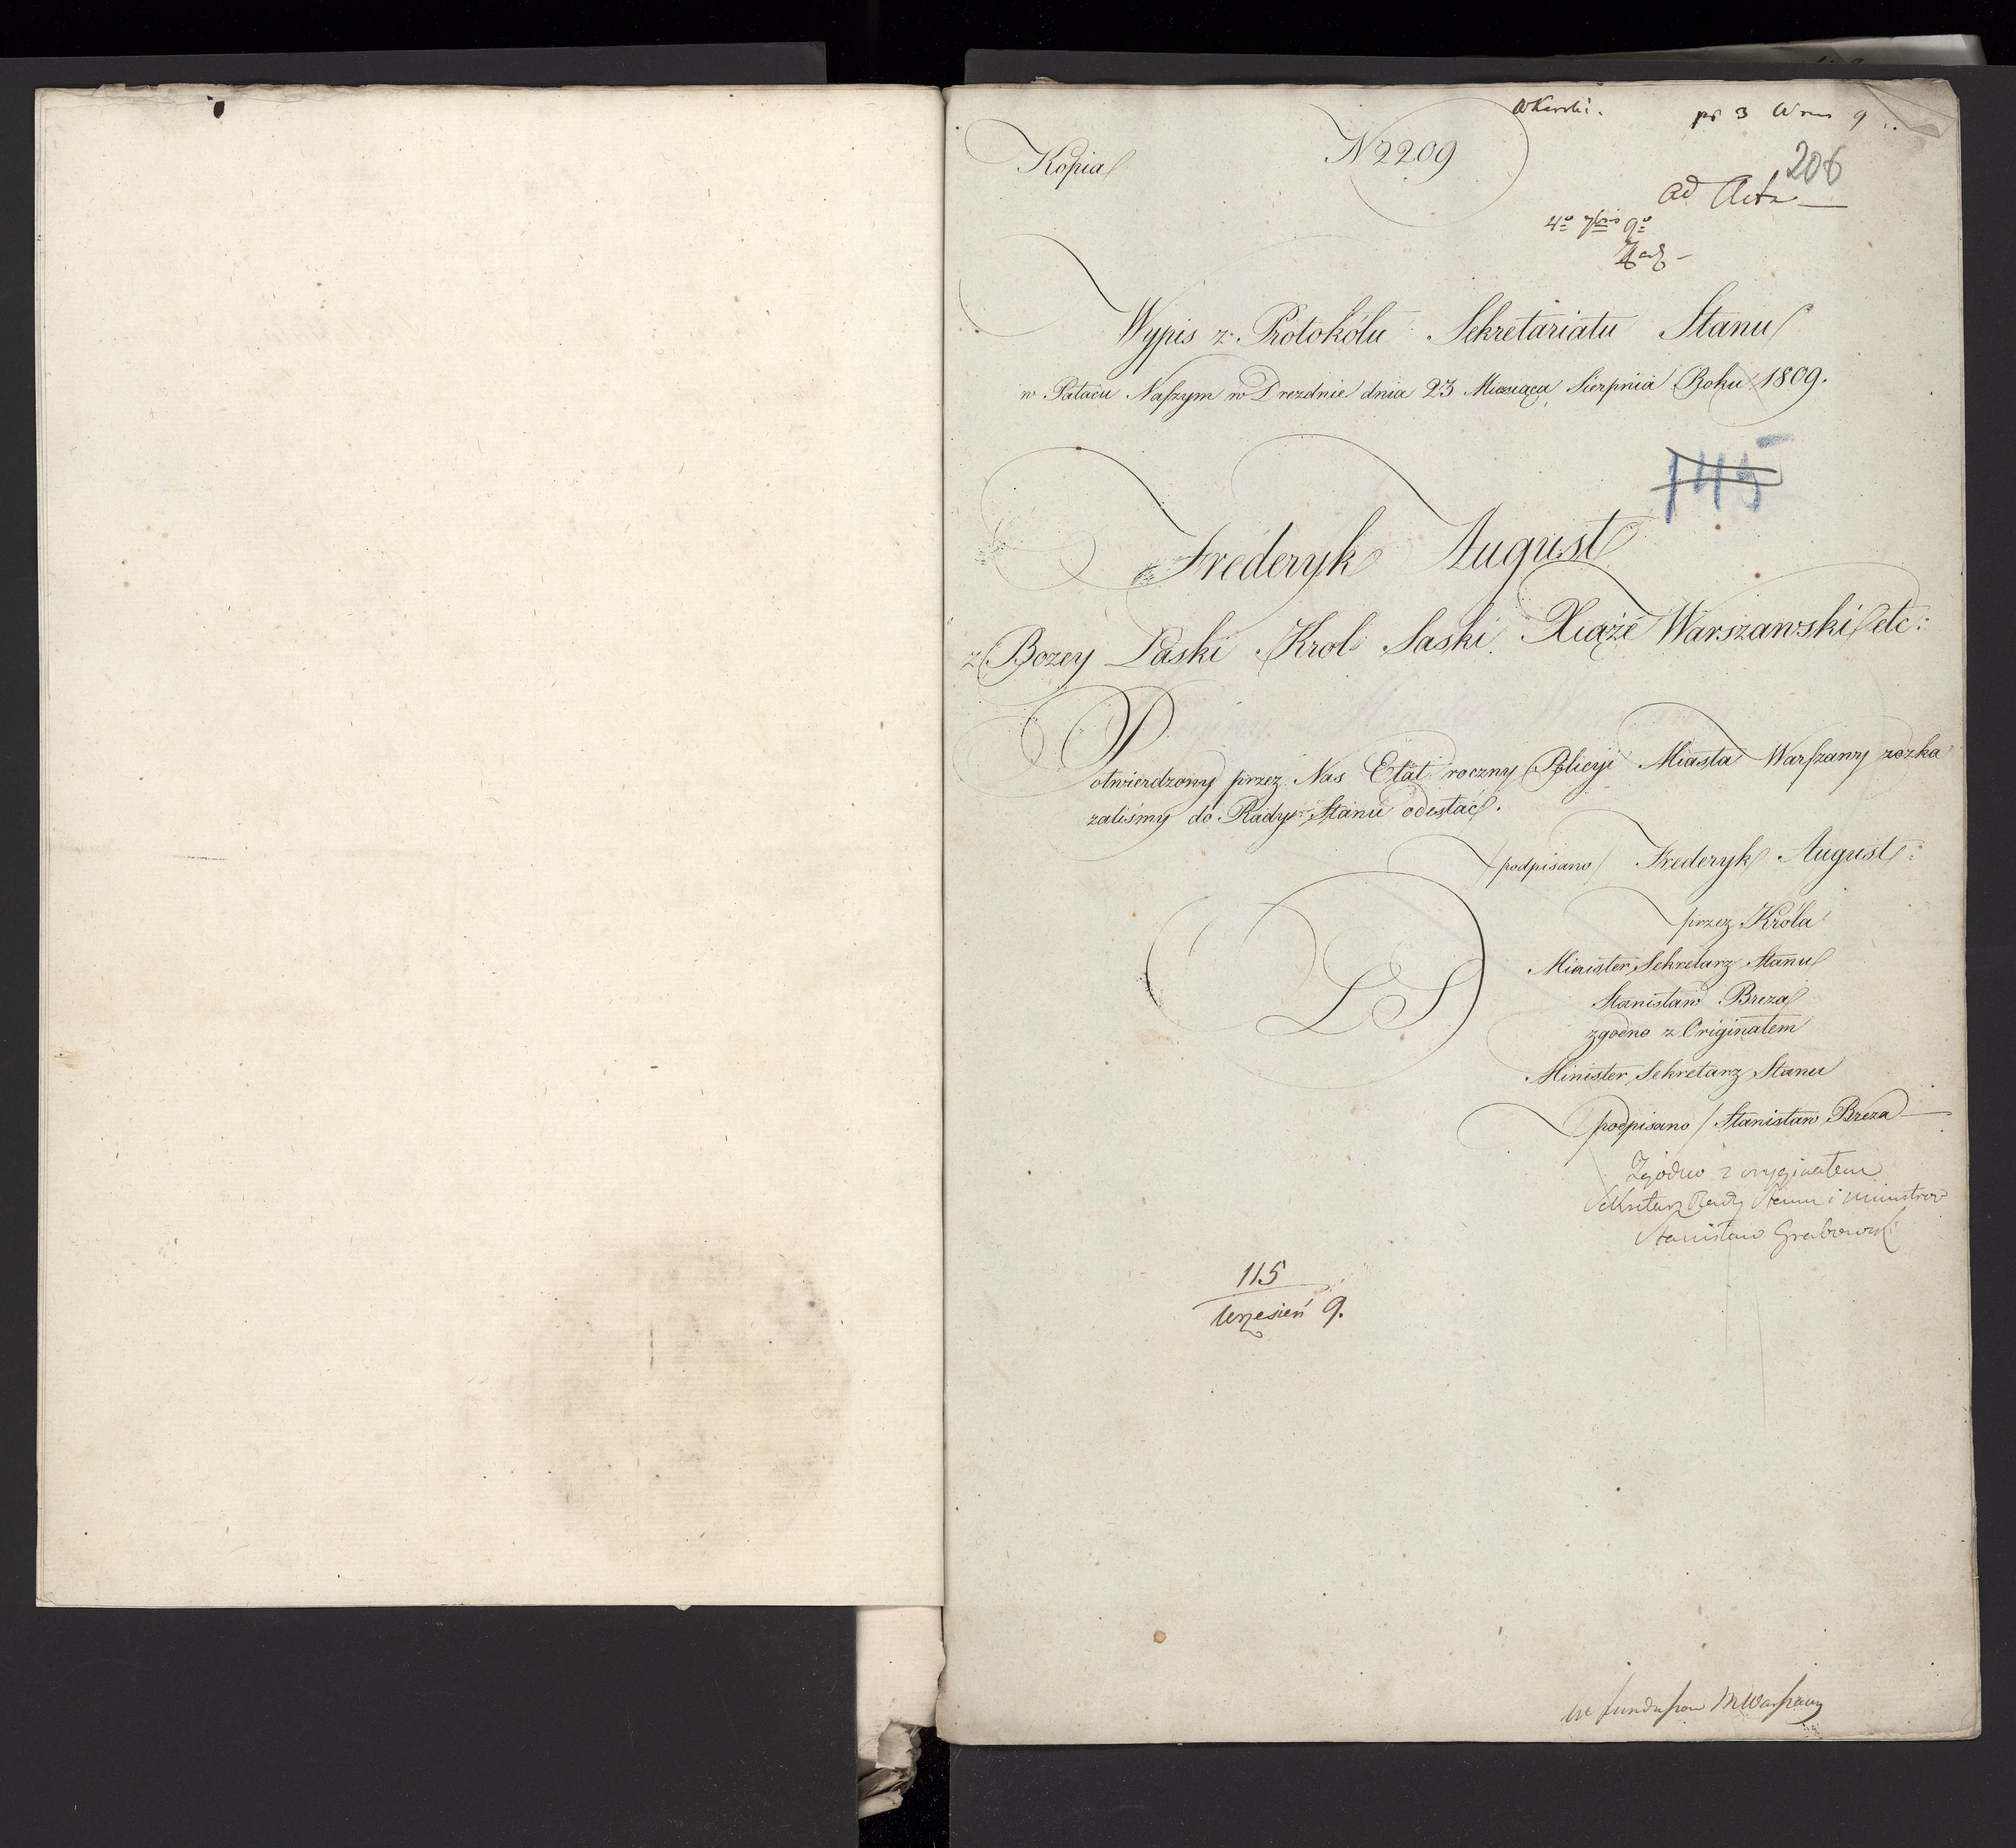 pr 3 Wrz 9
Kopia
N 2209
206
ad Acta
4º 7bris 9º
Wypis z Protokółu Sekretariatu Stanu
w Pałacu Naszym w Dreznie dnia 23 Miesiąca Sierpnia Roku 1809.
145
Frederyk August
z Bozey Łaski Krol Saski Xiąże Warszawski etc:
Potwierdzony przez Nas Etat roczny Policyi Miasta Warszawy rozka
zaliśmy do Rady Stanu odesłać.
/podpisano/ Frederyk August:
przez Króla
Minister Sekretarz Stanu
Stanisław Breza
zgodno z Originałem
Minister Sekretarz Stanu
podpisano / Stanisław Breza
LS
Zgodno z oryginałem
Sekretarz Rady Stanu i Ministrów
Stanisław Grabowski
115
Wrzesień 9.
M Warszawy